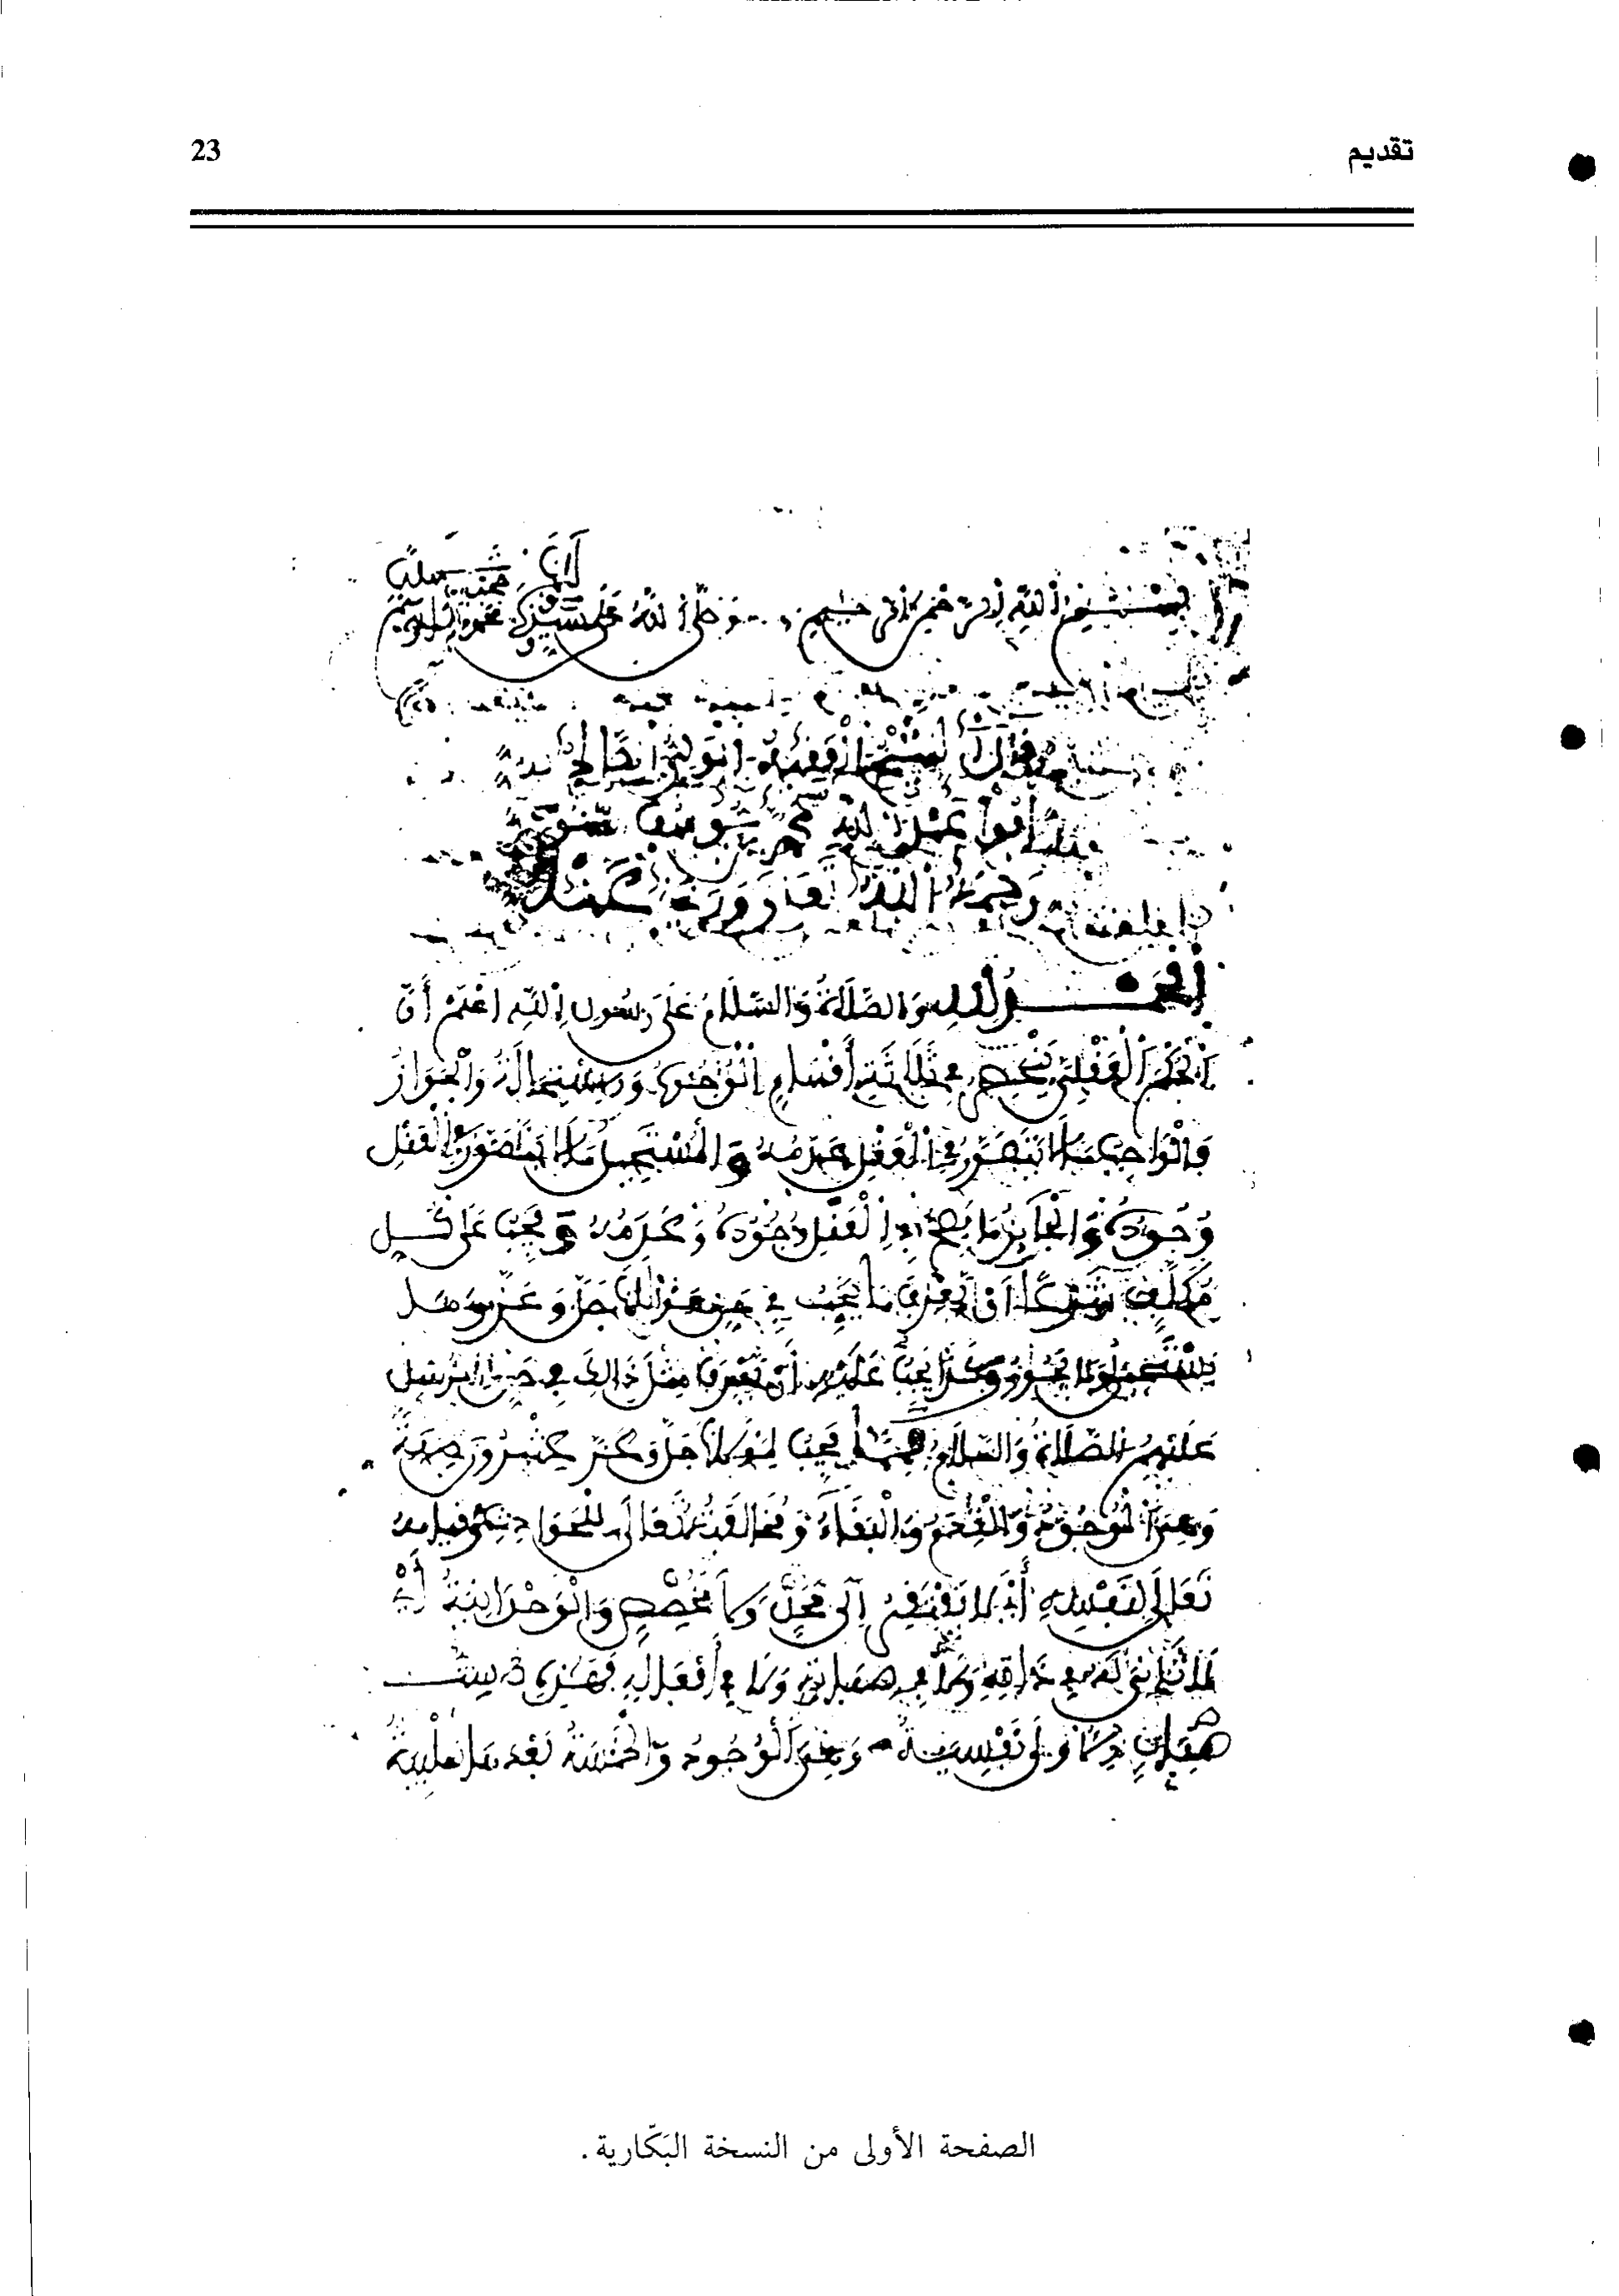 تقديم
23
بسم الله الرحمن الرحيم وصلى الله على سيدنا
قال الشيخ الفقيه الولي الصالح
أبو عبد الله محمد بن يوسف السنوسي
رحمه الله تعالى ورضي عنه
الحمد لله والصلاة والسلام على رسول الله اعلم أن
الحكم العقلي ينحصر في ثلاثة أقسام الوجوب والاستحالة والجواز
فالواجب ما لا يتصور في العقل عدمه والمستحيل ما لا يتصور في العقل
وجوده والجائز ما يصح في العقل وجوده وعدمه ويجب على كل
مكلف شرعا أن يعرف ما يجب في حق مولانا جل وعز وما
يستحيل وما يجوز وكذا يجب عليه أن يعرف مثل ذالك في حق الرسل
عليهم الصلاة والسلام فمما يجب لمولانا جل وعز عشرون صفة
وهي الوجود والقدم والبقاء ومخالفته تعالى للحوادث وقيامه
تعالى بنفسه أي لا يفتقر إلى محل ولا مخصص والوحدانية أي
لا ثاني له في ذاته ولا في صفاته ولا في أفعاله فهذه ست
صفات الأولى نفسية وهي الوجود والخمسة بعدها سلبية
الصفحة الأولى من النسخة البَكّارية.